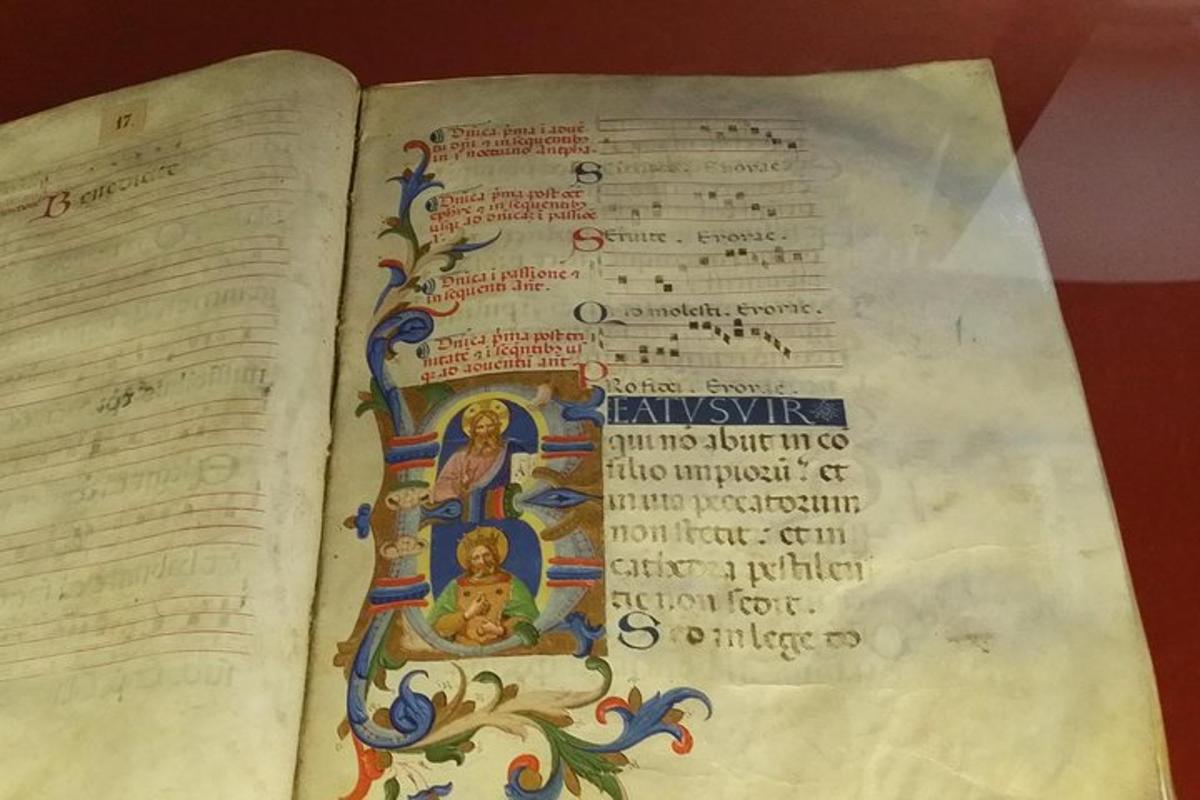 17
Benedicite
Dnica pma i adue
tu dni ⁊ in sequentibꝫ
in i nocturno antpha.
S Euouae.
Dnica pma post oct
ephie ⁊ in sequentibꝫ
usqꝫ ad dnicaꝫ i passioe
Seruite . Euouae .
Dnica i passione ⁊
in sequenti ant .
Q molesti . Euouae .
Dnica pma post tri
nitate ⁊ i seqntibꝫ us
qꝫ ad aduentu ant
Pro fidei . Euouae .
BEATVS VIR
qui nō abiit in cō
silio impiorū ⁏ et
in uia peccatorum
non stetit ⁏ et in
cathedra pestilen
tie non sedit .
Sed in lege do